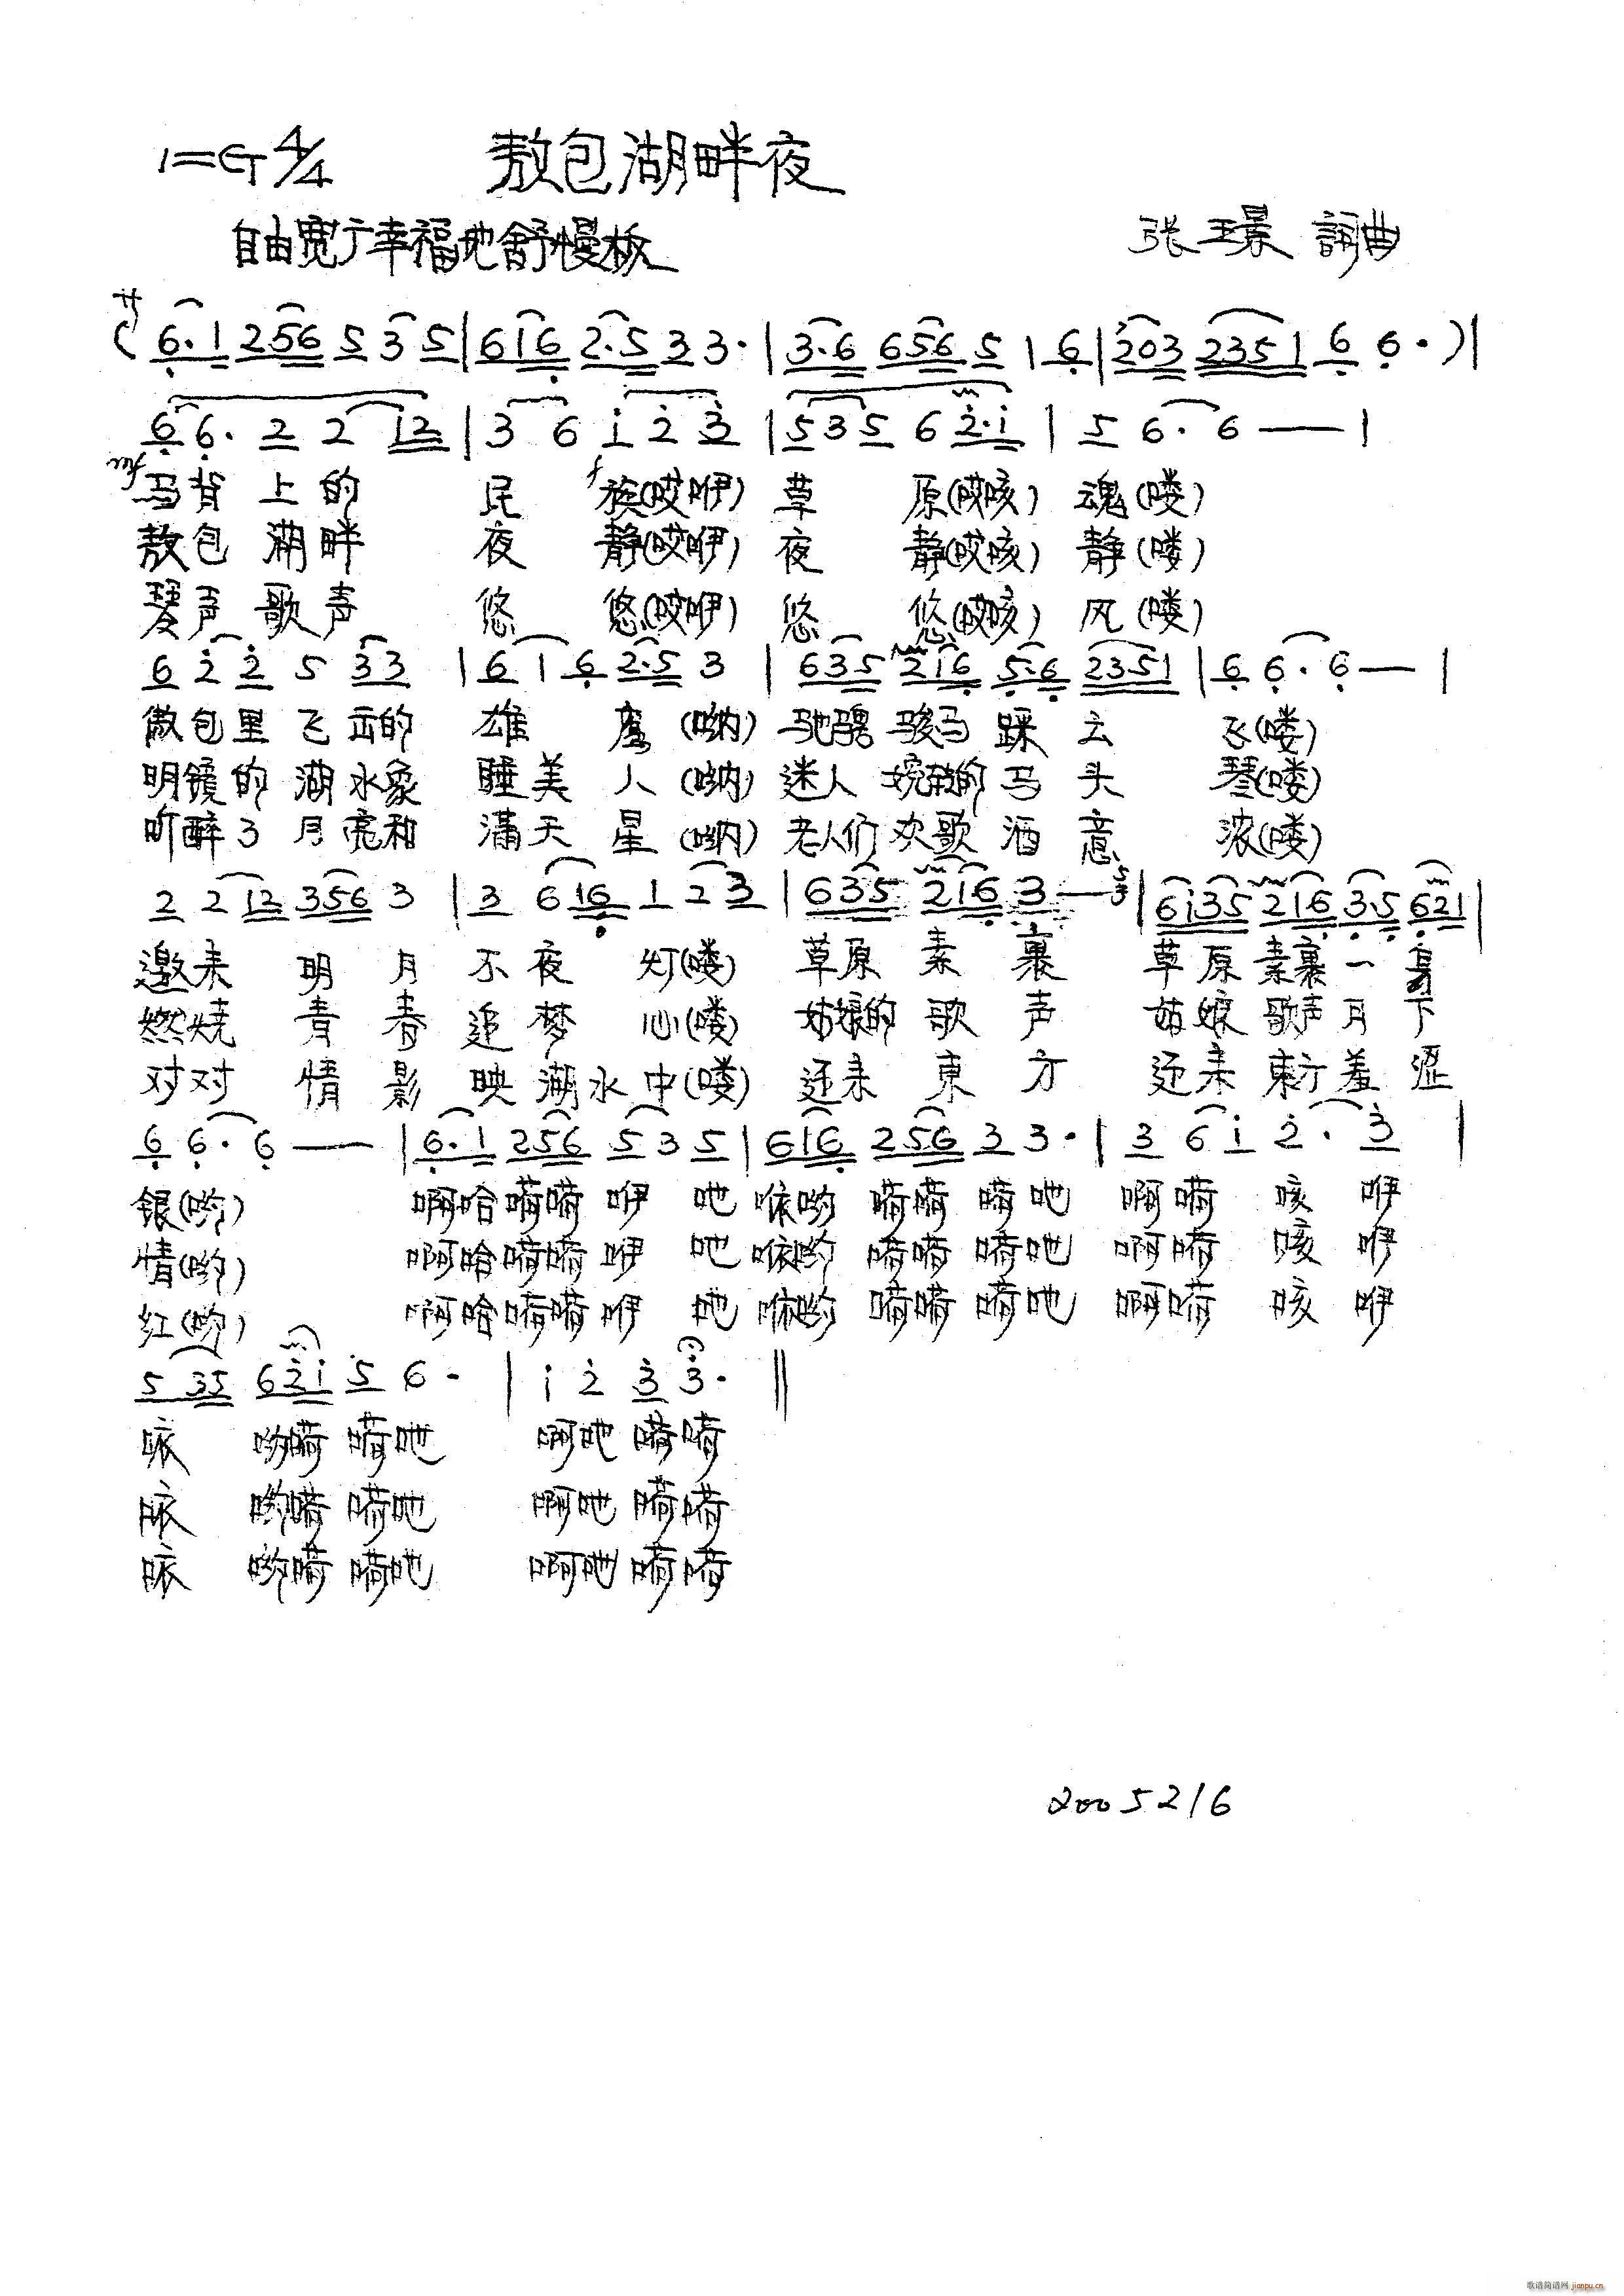 1=G 4/4 敖包湖畔夜
自由宽广幸福地舒慢板 张玉景 詞曲
サ
( 6·1 256 5 3 5 | 616 2·5 3 3· | 3·6 656 5 1 6 | 203 2351 6 6· ) |
6 6· 2 2 12 | 3 6 i 2 3 | 5 3 5 6 2·i | 5 6· 6 — |
mf 马背上的 民 f 族(哎咿) 草 原(哎咳) 魂(喽)
敖包湖畔 夜 静(哎咿) 夜 静(哎咳) 静(喽)
琴声歌声 悠 悠(哎咿) 悠 悠(哎咳) 风(喽)
6 2 2 5 33 | 6 1 6 2·5 3 | 635 216 5·6 2351 | 6 6· 6 — |
敖包里飞出的 雄 鹰 (呐) 驰骋骏马踩云 飞(喽)
明镜的湖水象 睡美人 (呐) 迷人婉转的马头 琴(喽)
听醉了月亮和 满天星 (呐) 老人们欢歌酒意 浓(喽)
2 2 12 356 3 | 3 6 16 1 2 3 | 635 216 3 — | 6i35 216 3·5 621 |
邀来 明月不夜 灯(喽) 草原素裹 草原素裹一身
燃烧 青春追梦 心(喽) 姑娘的歌声 姑娘歌声月下
对对 情影映湖水中(喽) 还来東方 还来東方羞涩
6 6· 6 — | 6·1 256 5 3 5 | 616 256 3 3· | 3 6 i 2· 3 |
银(哟) 啊哈嗬嗬咿 吔 咴哟 嗬嗬 嗬吔 啊嗬 咳 咿
情(哟) 啊哈嗬嗬咿 吔 咴哟 嗬嗬 嗬吔 啊嗬 咳 咿
红(哟) 啊哈嗬嗬咿 吔 咴哟 嗬嗬 嗬吔 啊嗬 咳 咿
5 35 62i 5 6· | i 2 3 3· ‖
咳 哟嗬 嗬吔 啊吔嗬嗬
咳 哟嗬 嗬吔 啊吔嗬嗬
咳 哟嗬 嗬吔 啊吔嗬嗬
2005216
歌谱简谱网 jianpu.cn